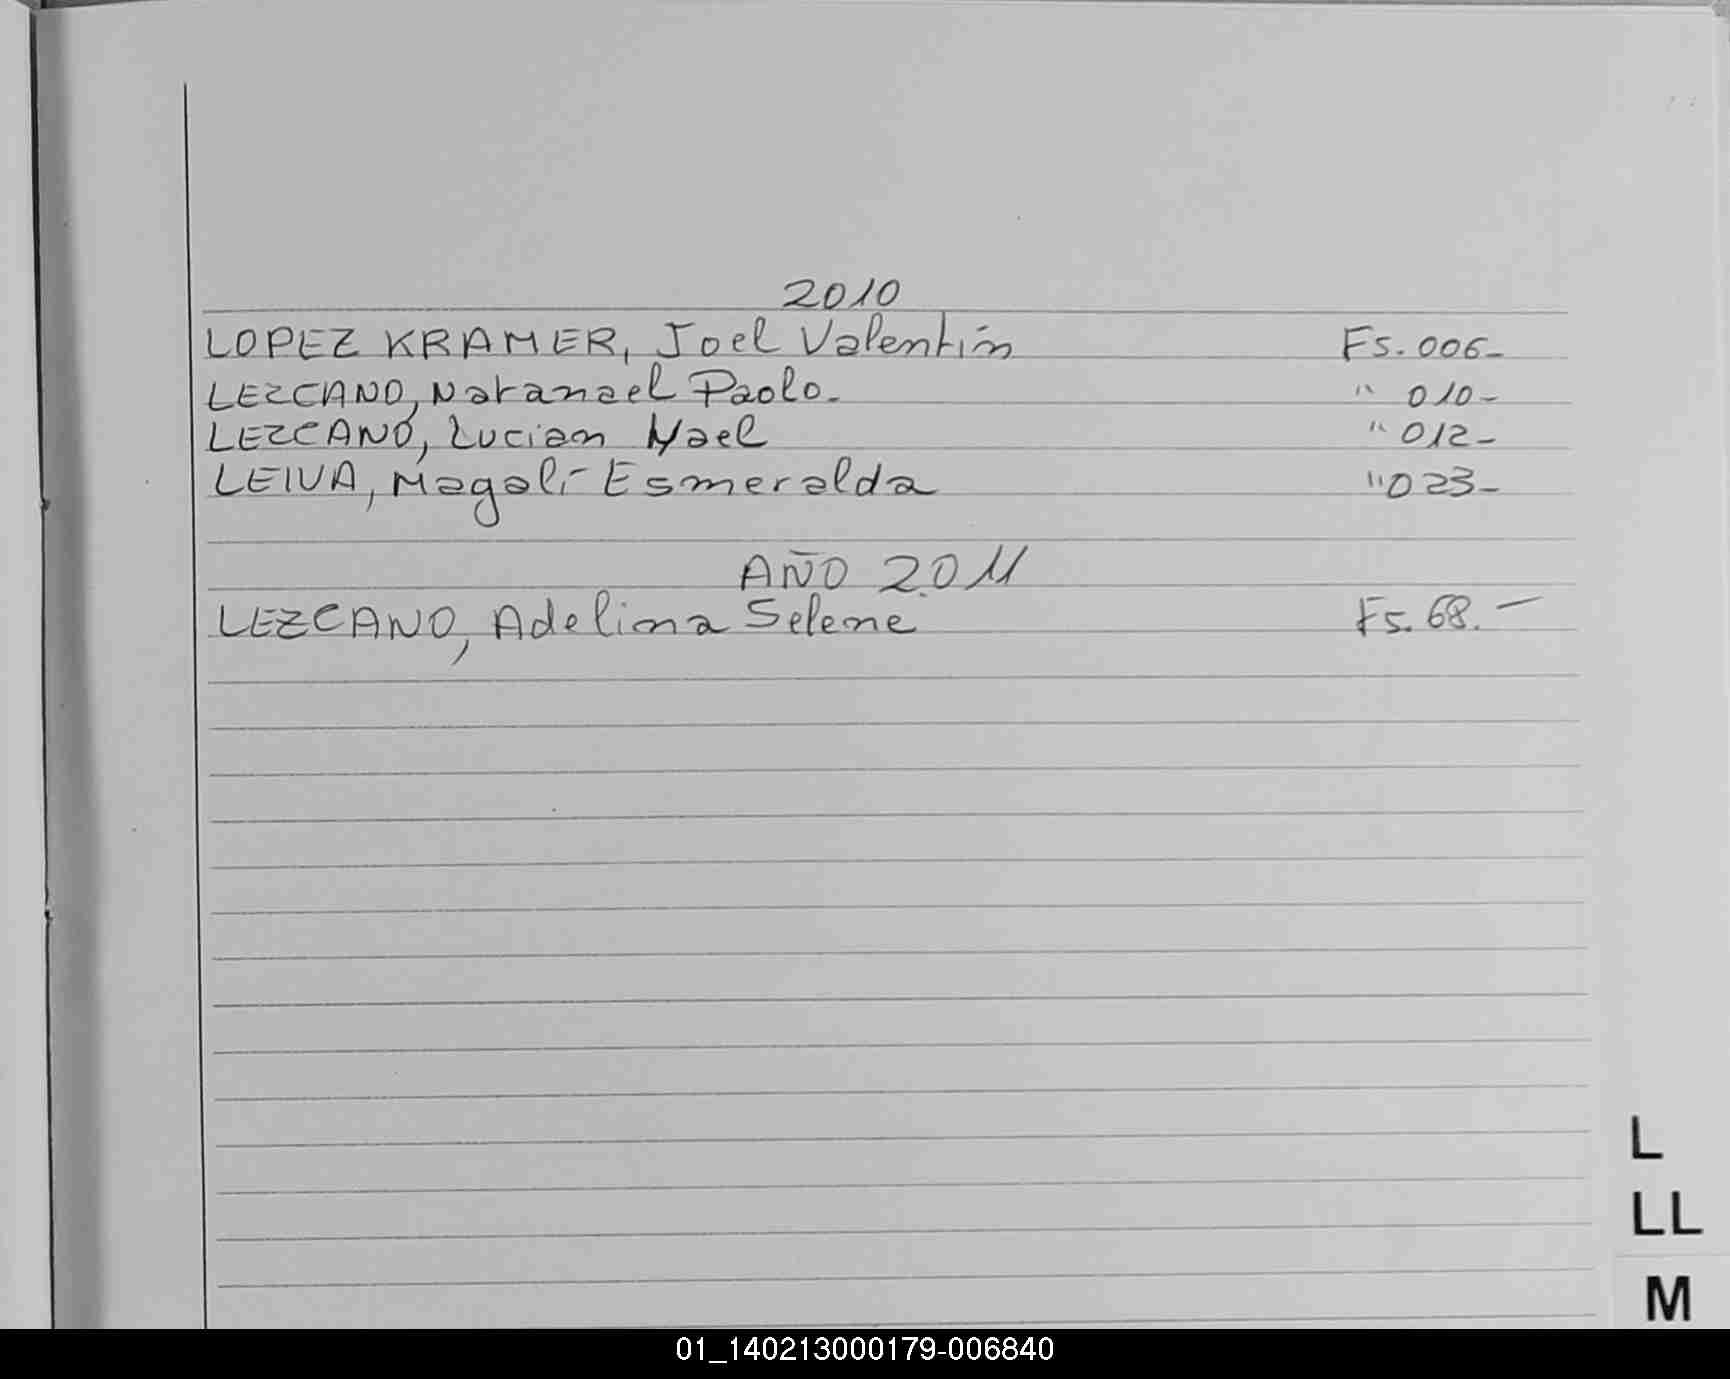 2010
LOPEZ KRAMER, Joel Valentín Fs. 006-
LEZCANO, Natanael Paolo. " 010-
LEZCANO, Lucian Yael " 012-
LEIVA, Magalí Esmeralda " 023-
AÑO 2.011
LEZCANO, Adelina Selene Fs. 68. -
L
LL
M
01_140213000179-006840